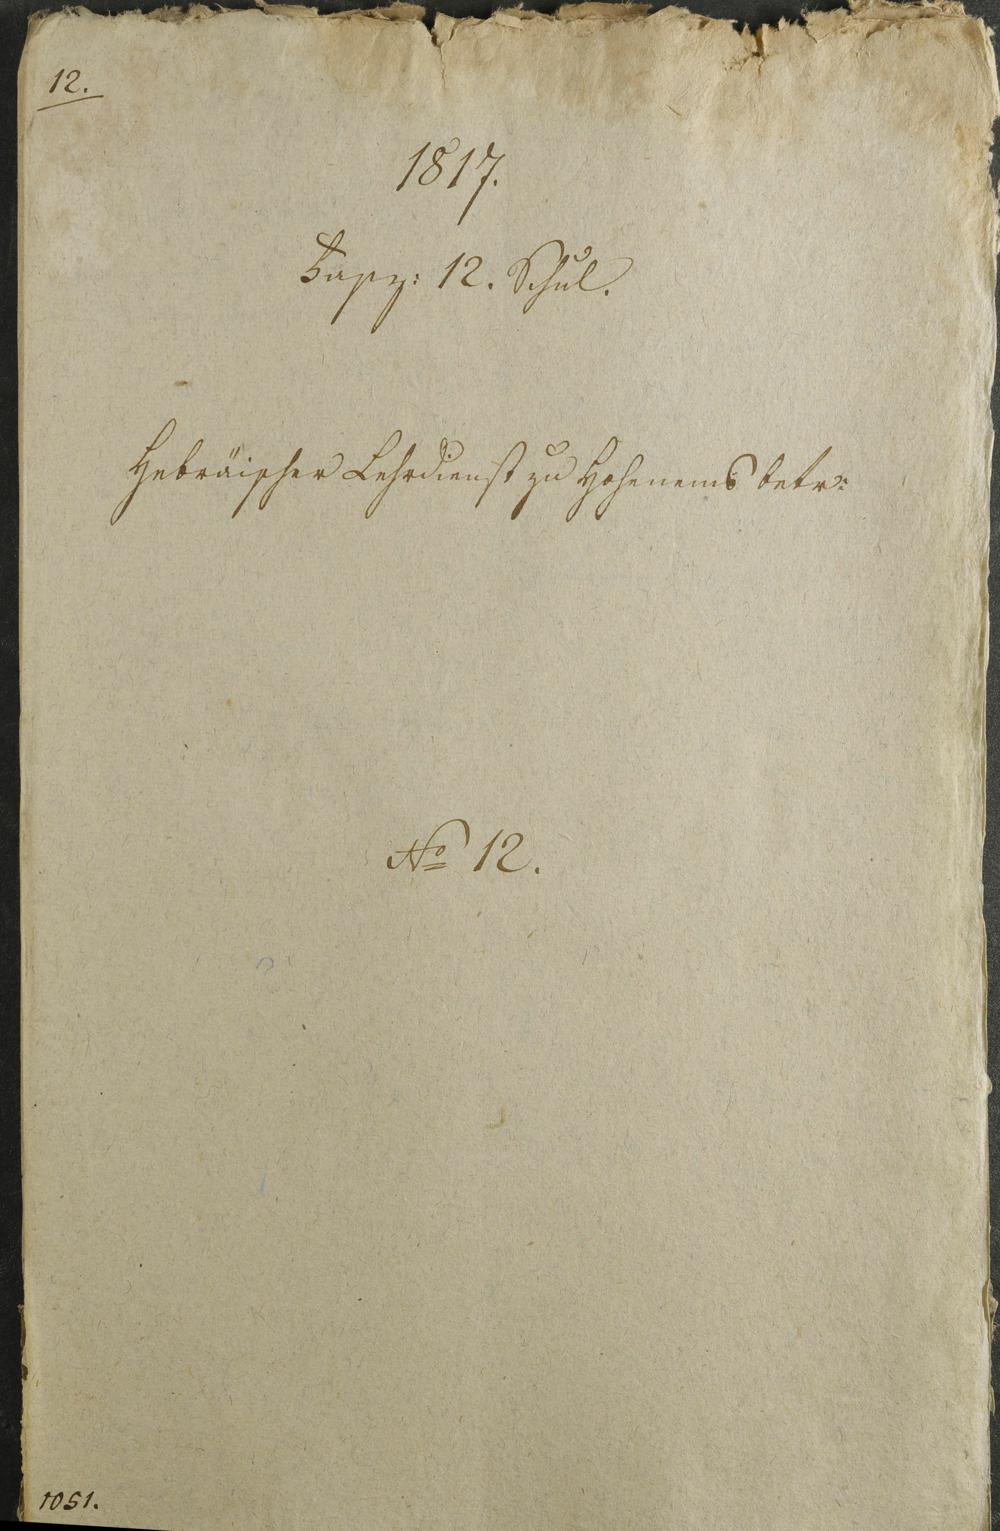 12.
1817.
Fasz: 12. Schul.
Hebräischer Lehrdienst zu Hohenems betr:
No 12.
1051.